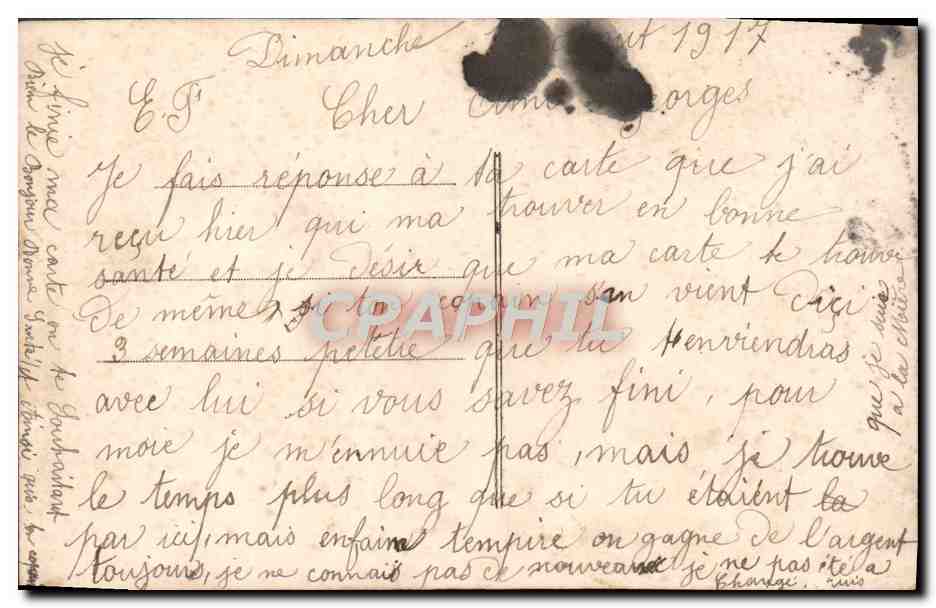 Dimanche 1917
E.F Cher Georges
Je fais réponse à ta carte que j'ai
reçu hier qui ma trouver en bonne
santé et je désir que ma carte te trouve
De même, si ton copain s'en vient d'ici
3 semaines petetre que tu t'enviendras
avec lui si vous savez fini, pour
moie je m'ennuie pas, mais je trouve
le temps plus long que si tu étaient la
par ici, mais enfaine tempire on gagne de l'argent
toujours, je ne connais pas de nouveau je ne pas été a
Change.
que je suis
a la Maitre
Je finie ma carte en te Souhaitant
Bien le Bonjour Bonne Santé et ainsi que
CPAPHIL